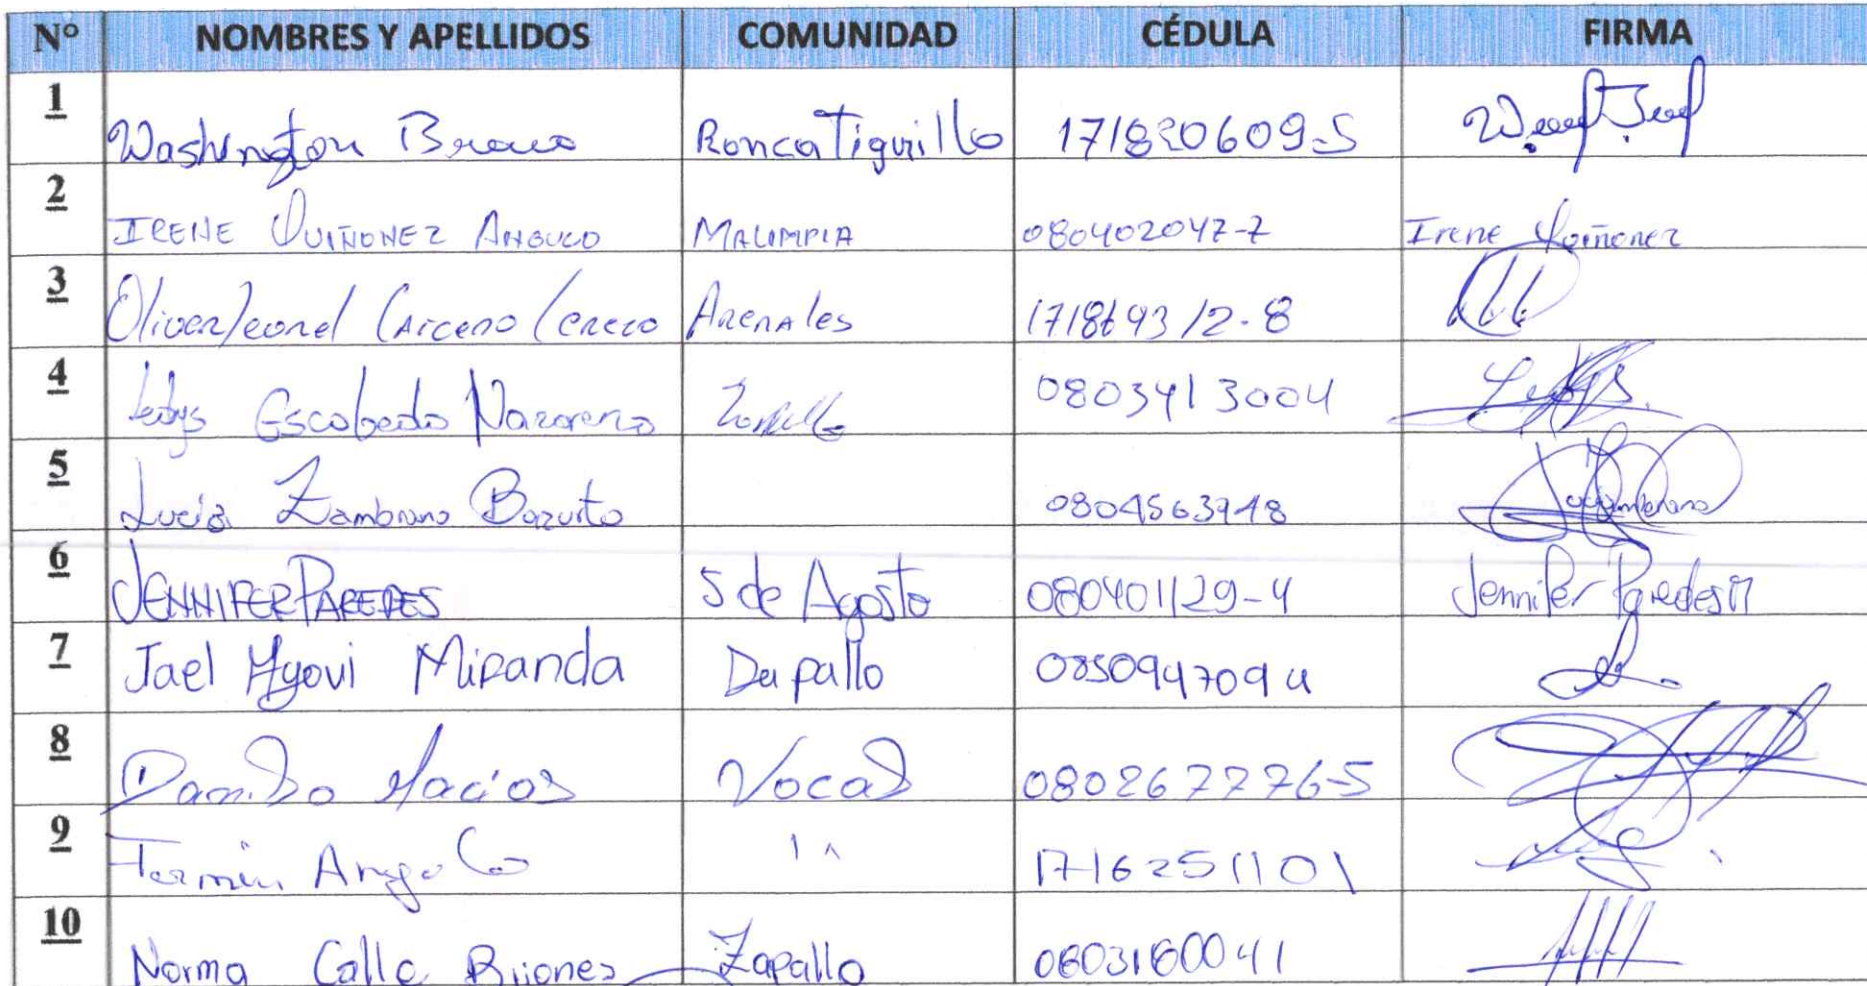 Nº NOMBRES Y APELLIDOS COMUNIDAD CÉDULA FIRMA
1 Washington Bravo Ronca Tigrillo 171820609-5
2 IRENE QUIÑONEZ ANGULO MALIMPIA 080402047-7 Irene Quiñonez
3 Oliver Leonel Arenales
4 Ledys Escobedo Nazareno 0803413004
5 Lucia Zambrano Bazurto 0804563948
6 JENNIFER PAREDES 5 de Agosto 080401129-4 Jennifer Paredes
7 Jael Ayovi Miranda Dapallo 0850947094
8 Danilo Macias Vocal 080267776-5
9 Fermin Angulo 1716251101
10 Norma Calle Briones Zapallo 0803180041